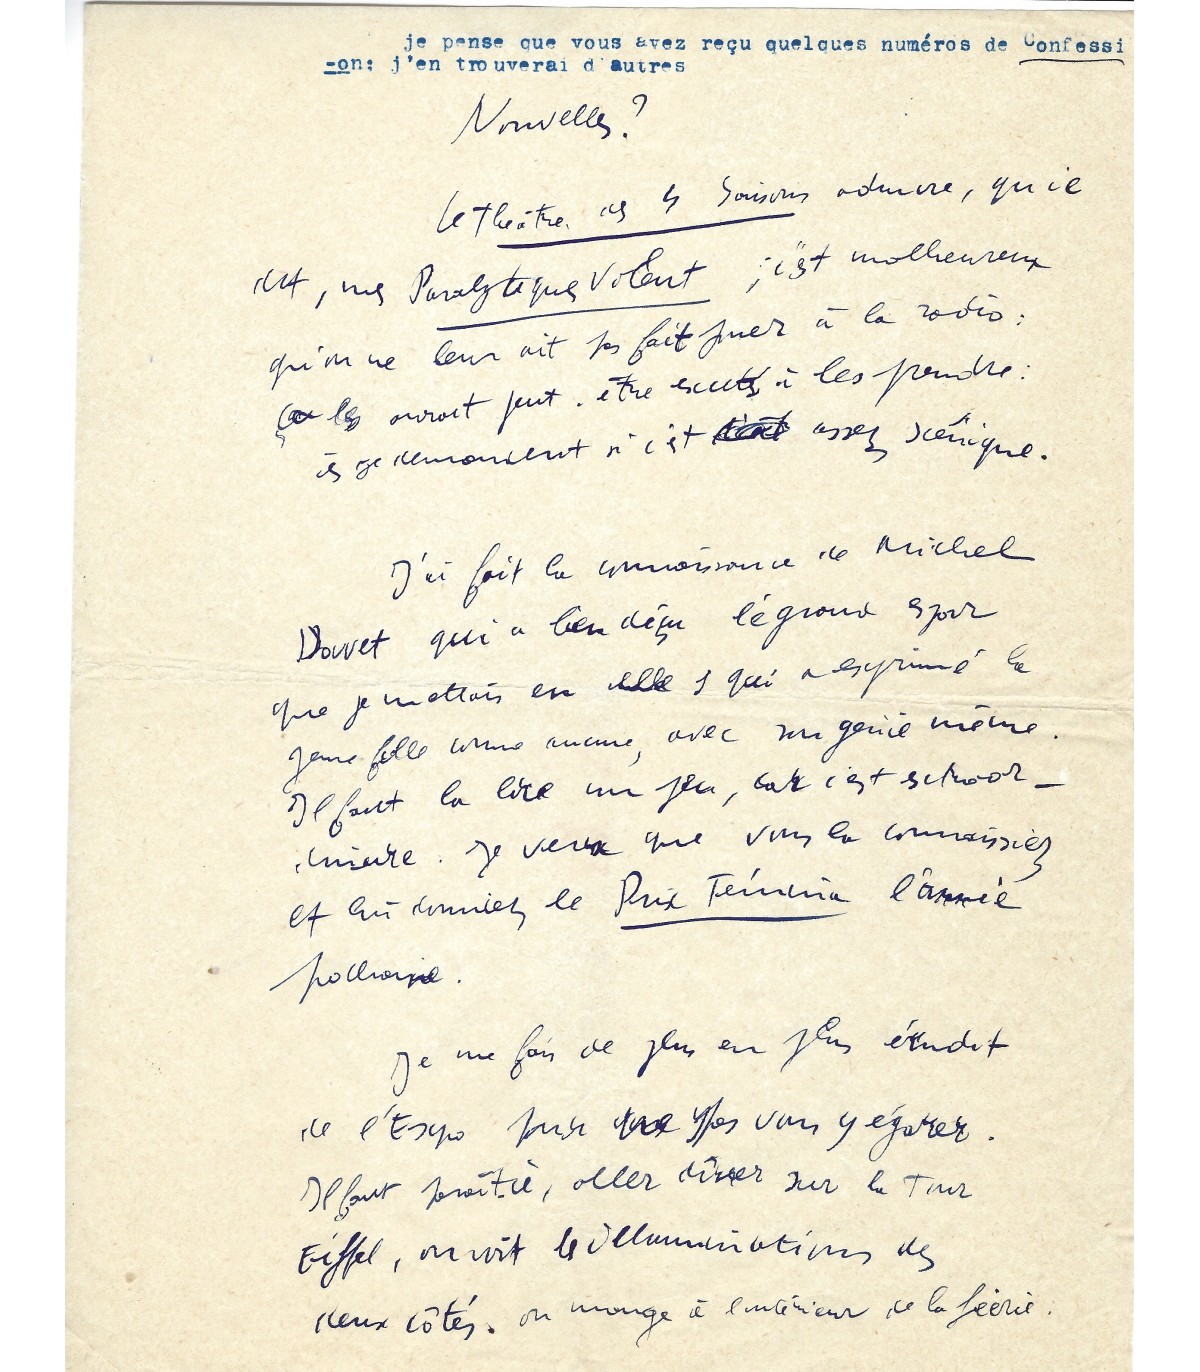 je pense que vous avez reçu quelques numéros de Confessi
-on: j'en trouverai d'autres
Nouvelles?
Le théâtre des 4 Saisons admire, qu'ie
dit, mes Paralytiques Volent ; c'est malheureux
qu'on ne leur ait pas fait jouer à la radio:
ça les aurait peut-être excités à les prendre:
ils se demandent si c'est assez scénique.
J'ai fait la connaissance de Michel
Davet qui a bien déçu le grand espoir
que je mettais en elle et qui a exprimé la
jeune fille comme aucune, avec son génie même.
Il faut la lire un peu, car c'est extraor-
dinaire. Je veux que vous la connaissiez
et lui donniez le Prix Fémina l'année
prochaine.
Je me fais de plus en plus érudit
de l'Expo pour que pas vous y égarer.
Il faut paraît-il, aller dîner sur la Tour
Eiffel, on voit les illuminations des
deux côtés. on mange à l'intérieur de la féérie.